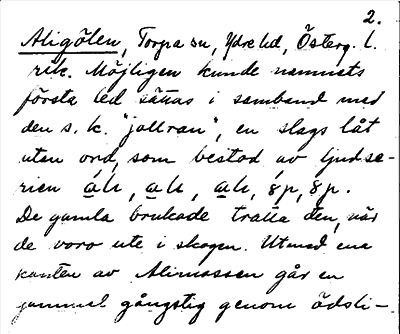 2.
Aligölen, Torpa sn, Ydre hd, Österg. l.
rik. Möjligen kunde namnets
första led sättas i samband med
den s. k. "jallran", en slags låt
uten ord, som bestod av ljudse-
rien áh, ah, ah, gp, gp.
De gamla brukade tralla den, när
de voro ute i skogen. Utmed ena
kanten av Alimossen går en
gammal gångstig genom ödsli-